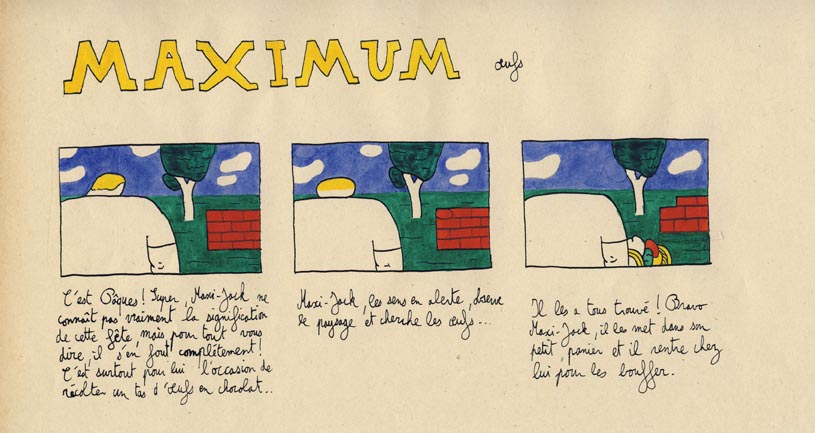 MAXIMUM
œufs
C'est Pâques! Super, Maxi-Jack ne
connaît pas vraiment la signification
de cette fête, mais pour tout vous
dire, il s'en fout complétement!
C'est surtout pour lui l'occasion de
récolter un tas d'œufs en chocolat..
Maxi-Jack, les sens en alerte, observe
le paysage et cherche les œufs...
Il les a tous trouvé! Bravo
Maxi-Jack, il les met dans son
petit panier et il rentre chez
lui pour les bouffer.